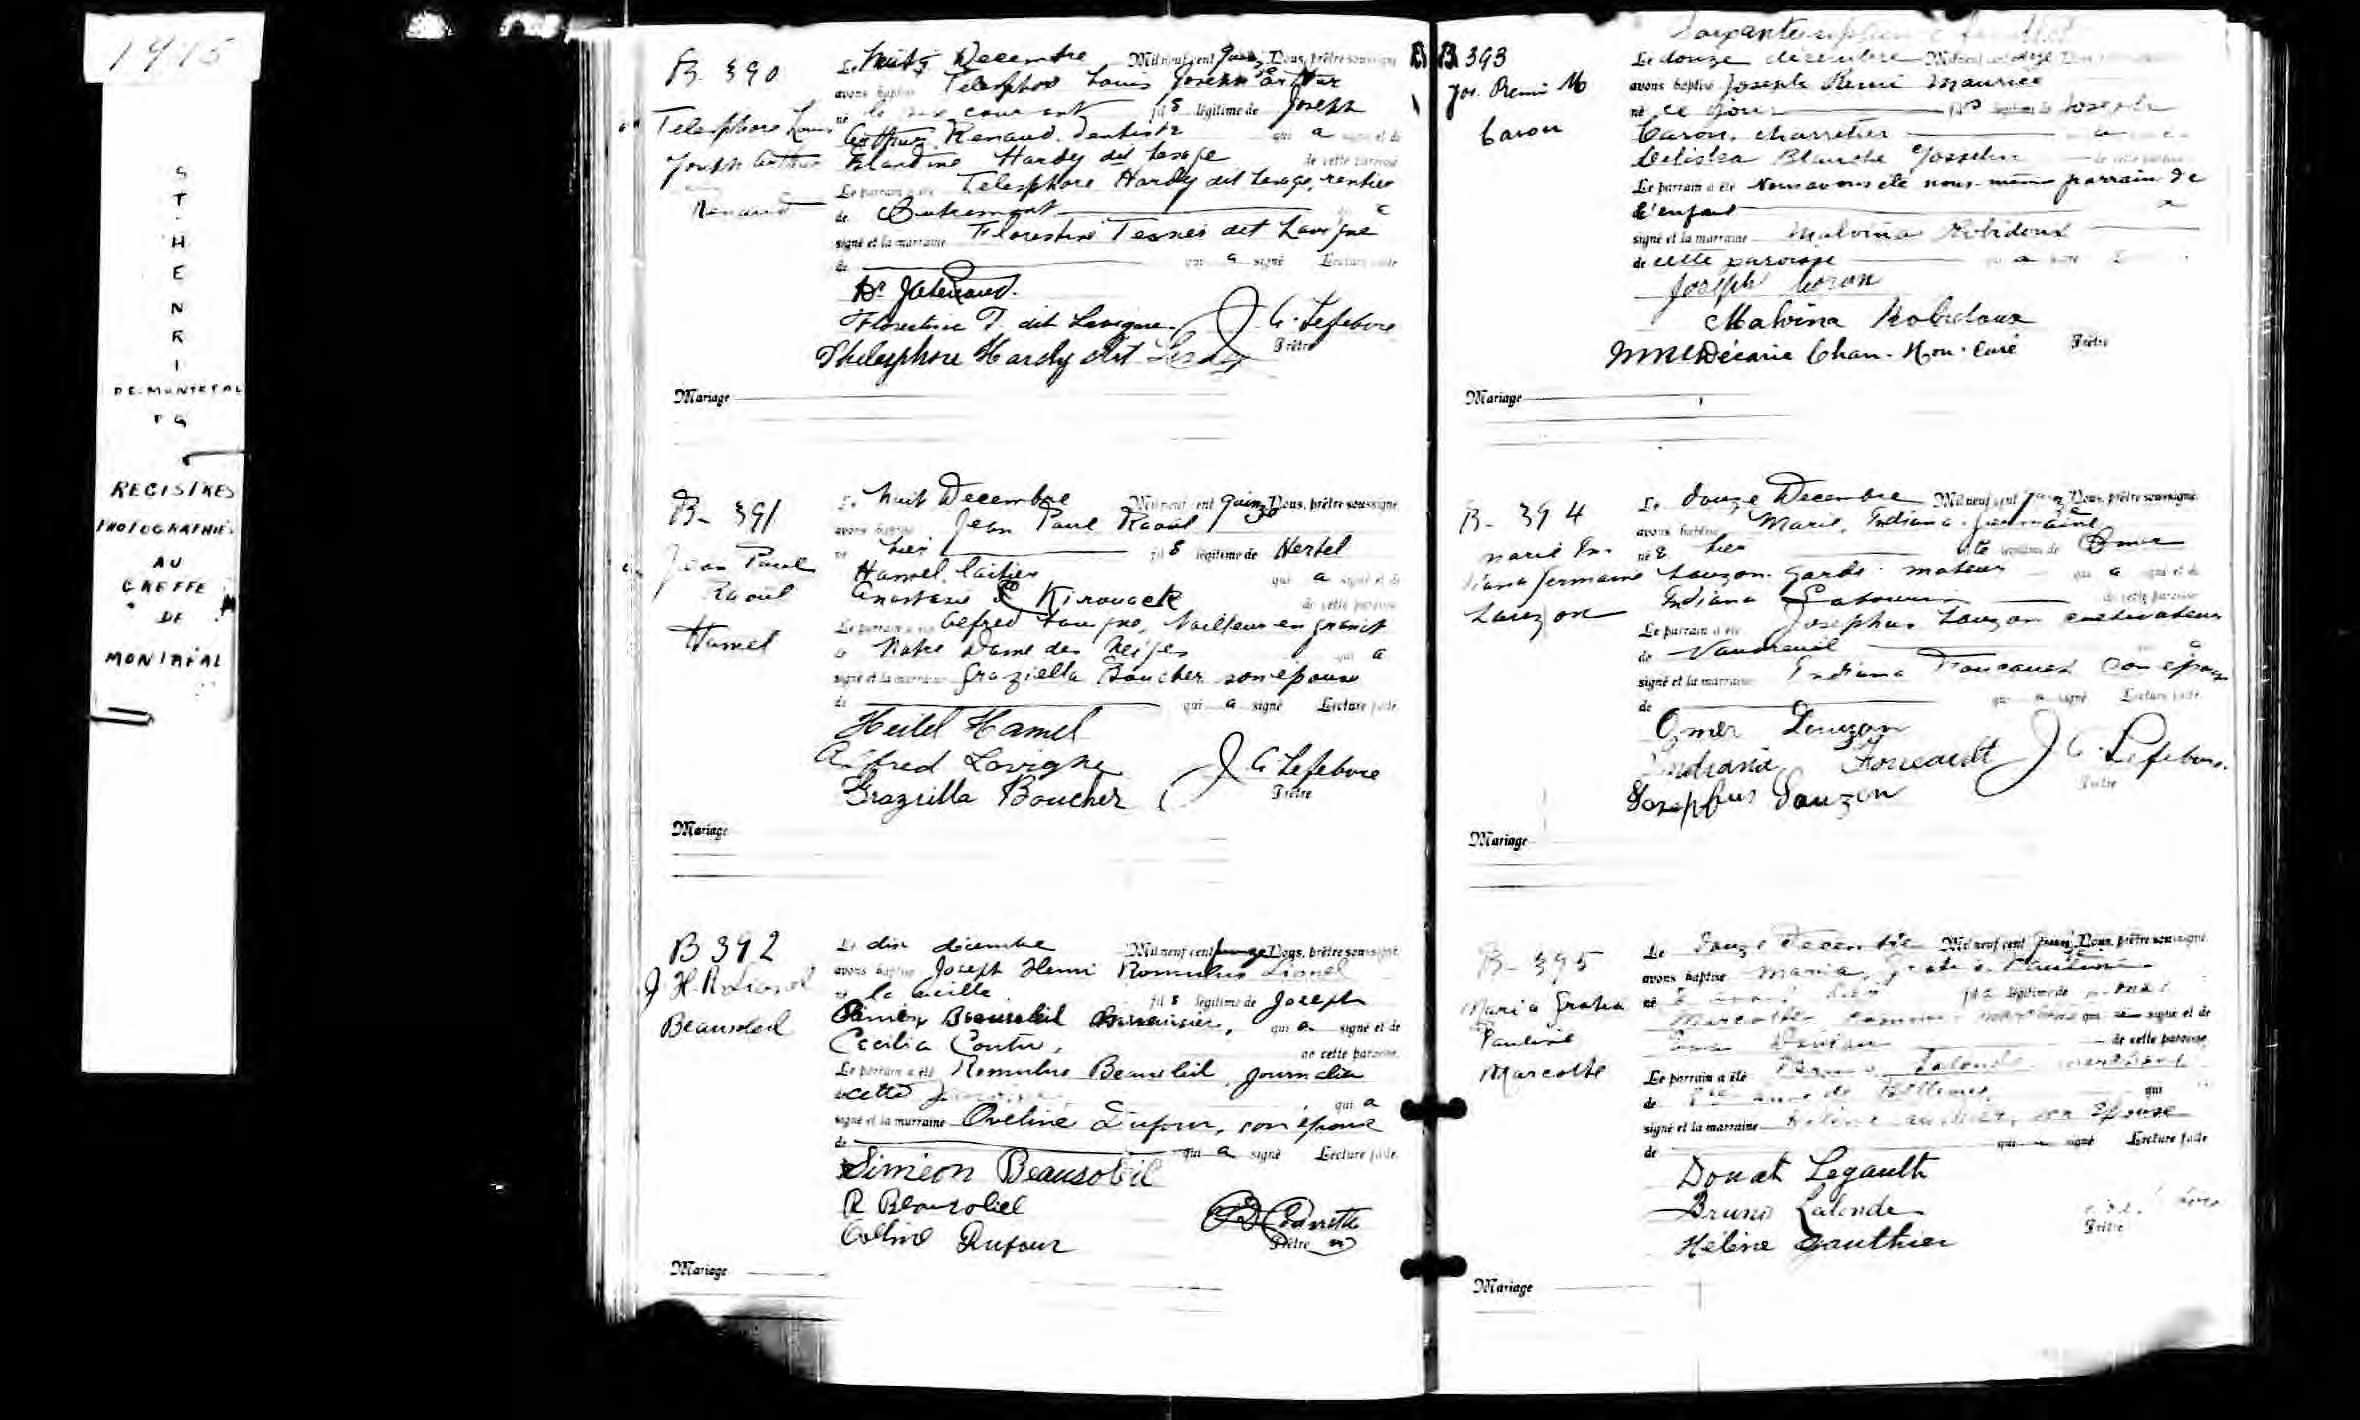 1915
S
T
H
E
N
R
I
DE-MONTREAL
P Q
REGISTRES
PHOTOGRAPHIÉS
AU
GREFFE
DE
MONTRÉAL
B. 390
Telesphore Louis
Joseph Arthur
Renaud
Le huit Decembre Mil neuf cent quinze Nous, prêtre soussigné
avons baptisé Telesphore Louis Joseph Arthur
né le courant fils légitime de Joseph
Arthur Renaud. Dentiste qui a signé et de
Hardy dit Lesage de cette paroisse
Le parrain a été Telesphore Hardy dit Lesage, rentier
de Outremont a
signé et la marraine Florestine dit Lavigne
de qui a signé Lecture faite
Florestine T. dit Lavigne. J. G. Lefebvre
Thelesphore Hardy dit Prêtre
Mariage
B- 391
Jean Paul
Raoul
Hamel
Le huit Decembre Mil neuf cent quinze Nous, prêtre soussigné
avons baptisé Jean Paul Raoul
né hier fils légitime de Hertel
Hamel, laitier qui a signé et de
Anastasie Kirouack de cette paroisse
Le parrain a été Alfred Lavigne, tailleur en granit
de Notre Dame des Neiges qui a
signé et la marraine Graziella Boucher son épouse
de qui a signé Lecture faite
Hertel Hamel
Alfred Lavigne J. G. Lefebvre
Graziella Boucher Prêtre
Mariage
B 392
J. H. R. Lionel
Beausoleil
Le dix décembre Mil neuf cent quinze Nous, prêtre soussigné
avons baptisé Joseph Henri Romulus Lionel
né la veille fils légitime de Joseph
Siméon Beausoleil menuisier, qui a signé et de
Cecilia Contu, de cette paroisse
Le parrain a été Romulus Beausoleil, journalier
de cette paroisse, qui a
signé et la marraine Oveline Dufour, son épouse
de qui a signé Lecture faite
Siméon Beausoleil
R Beausoleil
Dufour Prêtre
Mariage
B 393
Jos. Remi M
Caron
Le douze décembre Mil neuf cent
avons baptisé Joseph Remi Maurice
né ce jour fils légitime de Joseph
Caron, charretier a
Blanche Gosselin de cette paroisse
Le parrain a été Nous avons été nous-même parrain de
l'enfant a
signé et la marraine Malvina Robidoux
de cette paroisse a
Joseph Caron
Malvina Robidoux
Décarie Chan. Hon. Curé Prêtre
Mariage
B- 394
Marie In-
diana Germaine
Lauzon
Le douze Decembre Mil neuf cent quinze Nous, prêtre soussigné
avons baptisé Marie, Indiana Germaine
née hier fille légitime de Omer
Lauzon. garde-moteur qui a signé et de
Indiana de cette paroisse
Le parrain a été Josephus Lauzon cultivateur
de Vaudreuil a
signé et la marraine Indiana Foucault son épouse
de qui a signé Lecture faite
Omer Lauzon
Indiana Foucault J. G. Lefebvre.
Josephus Lauzon Prêtre
Mariage
B- 395
Maria Gratia
Pauline
Marcotte
Le douze Decembre Mil neuf cent quinze Nous, prêtre soussigné
avons baptisé Maria, Gratia Pauline
né fille légitime de
Marcotte qui signé et de
de cette paroisse
Le parrain a été Bruno Lalonde marchand
de Ste Anne de Bellevue, qui
signé et la marraine Hélène Gauthier, son épouse
de qui a signé Lecture faite
Donat Legault
Bruno Lalonde
Hélène Gauthier Prêtre
Mariage